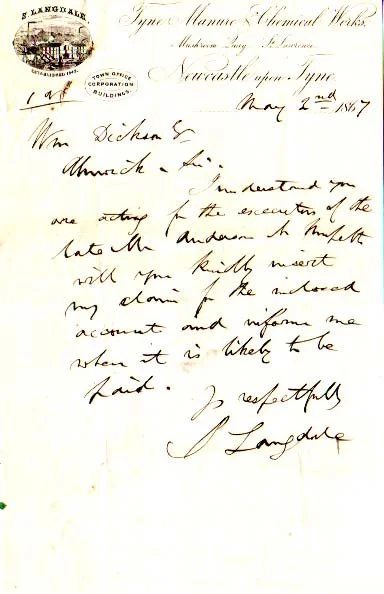 S LANGDALE
ESTABLISHED
TOWN OFFICE
CORPORATION
BUILDINGS
Tyne Manure & Chemical Works,
Mushroom Quay, St Lawrence
Newcastle upon Tyne
May 2nd 1867
Wm Dickson Esq
Alnwick - Sir -
I understand you
are acting for the executors of the
late Mr Anderson
will you kindly insert
my claim for the inclosed
account and inform me
when it is likely to be
paid.
Yrs respectfully
S Langdale